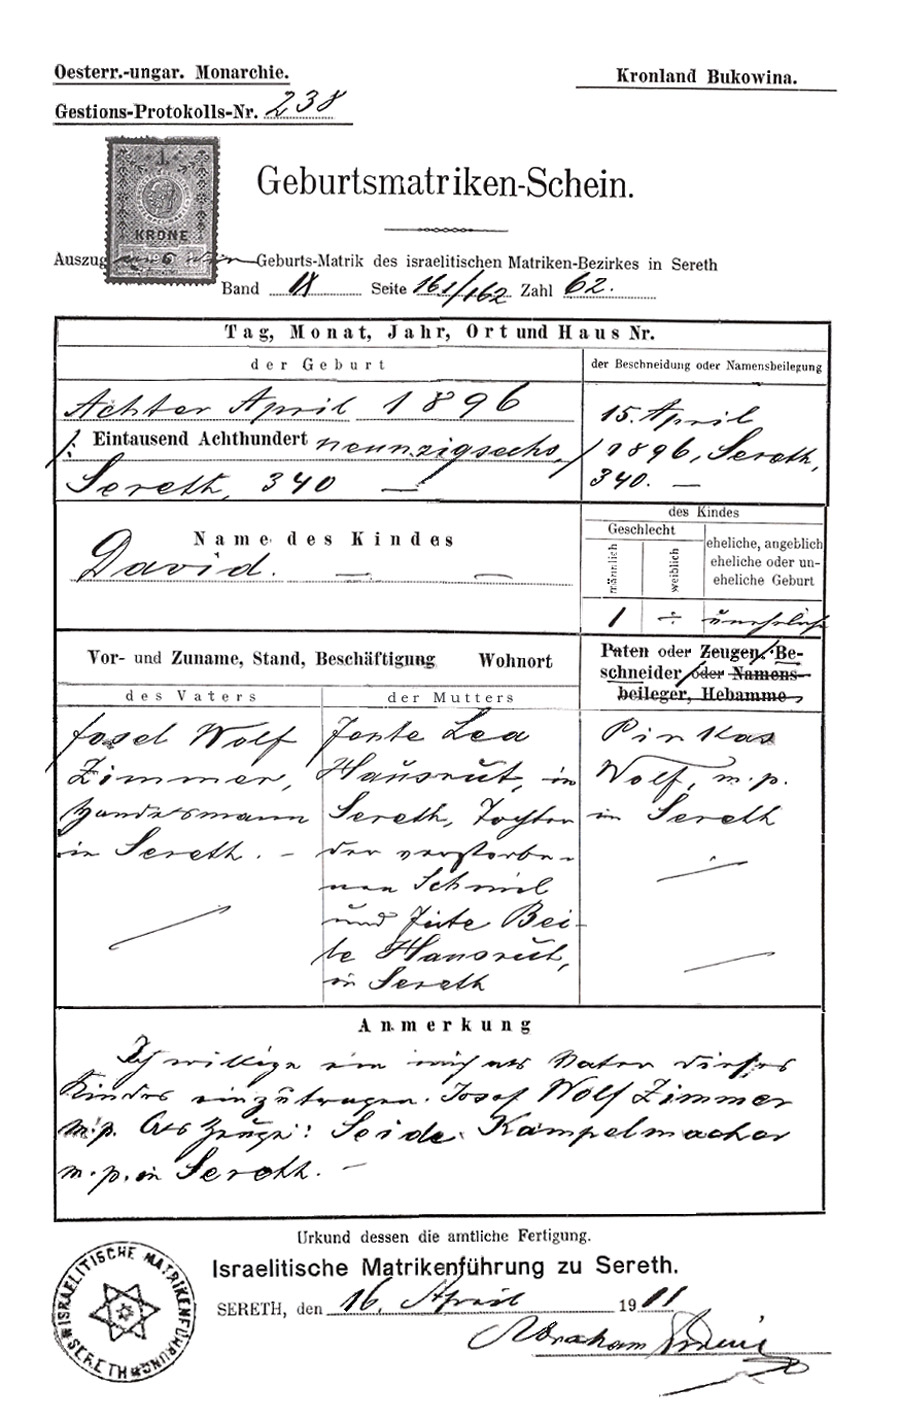 Oesterr.-ungar. Monarchie.
Kronland Bukowina.
Gestions-Protokolls-Nr. 238
1
KRONE
Geburtsmatriken-Schein.
Auszug Geburts-Matrik des israelitischen Matriken-Bezirkes in Sereth
Band IX Seite 161/162 Zahl 62.
Tag, Monat, Jahr, Ort und Haus Nr.
der Geburt
der Beschneidung oder Namensbeilegung
Achter April 1896
/: Eintausend Achthundert neunzigsechs, /
Sereth, 340 —
15. April
1896, Sereth,
340. —
Name des Kindes
David. — —
des Kindes
Geschlecht
männlich
weiblich
eheliche, angeblich
eheliche oder un-
eheliche Geburt
1 ÷ uneheliche
Vor- und Zuname, Stand, Beschäftigung Wohnort
des Vaters
der Mutters
Paten oder Zeugen, Be-
schneider oder Namens-
beileger, Hebamme
Josel Wolf
Zimmer,
Handelsmann
in Sereth. –
Jente Lea
Hausrut, in
Sereth, Tochter
der verstorbe-
nen Schmil
und Jüte Bei-
le Hausrut,
in Sereth
Pinkas
Wolf, m.p.
in Sereth
Anmerkung
Ich willige ein mich als Vater dieses
Kindes einzutragen. Josef Wolf Zimmer
m.p. Als Zeuge: Seide Kampelmacher
m.p. in Sereth. –
Urkund dessen die amtliche Fertigung.
Israelitische Matrikenführung zu Sereth.
SERETH, den 16. April 1911
Abraham
ISRAELITISCHE MATRIKENFÜHRUNG
SERETH